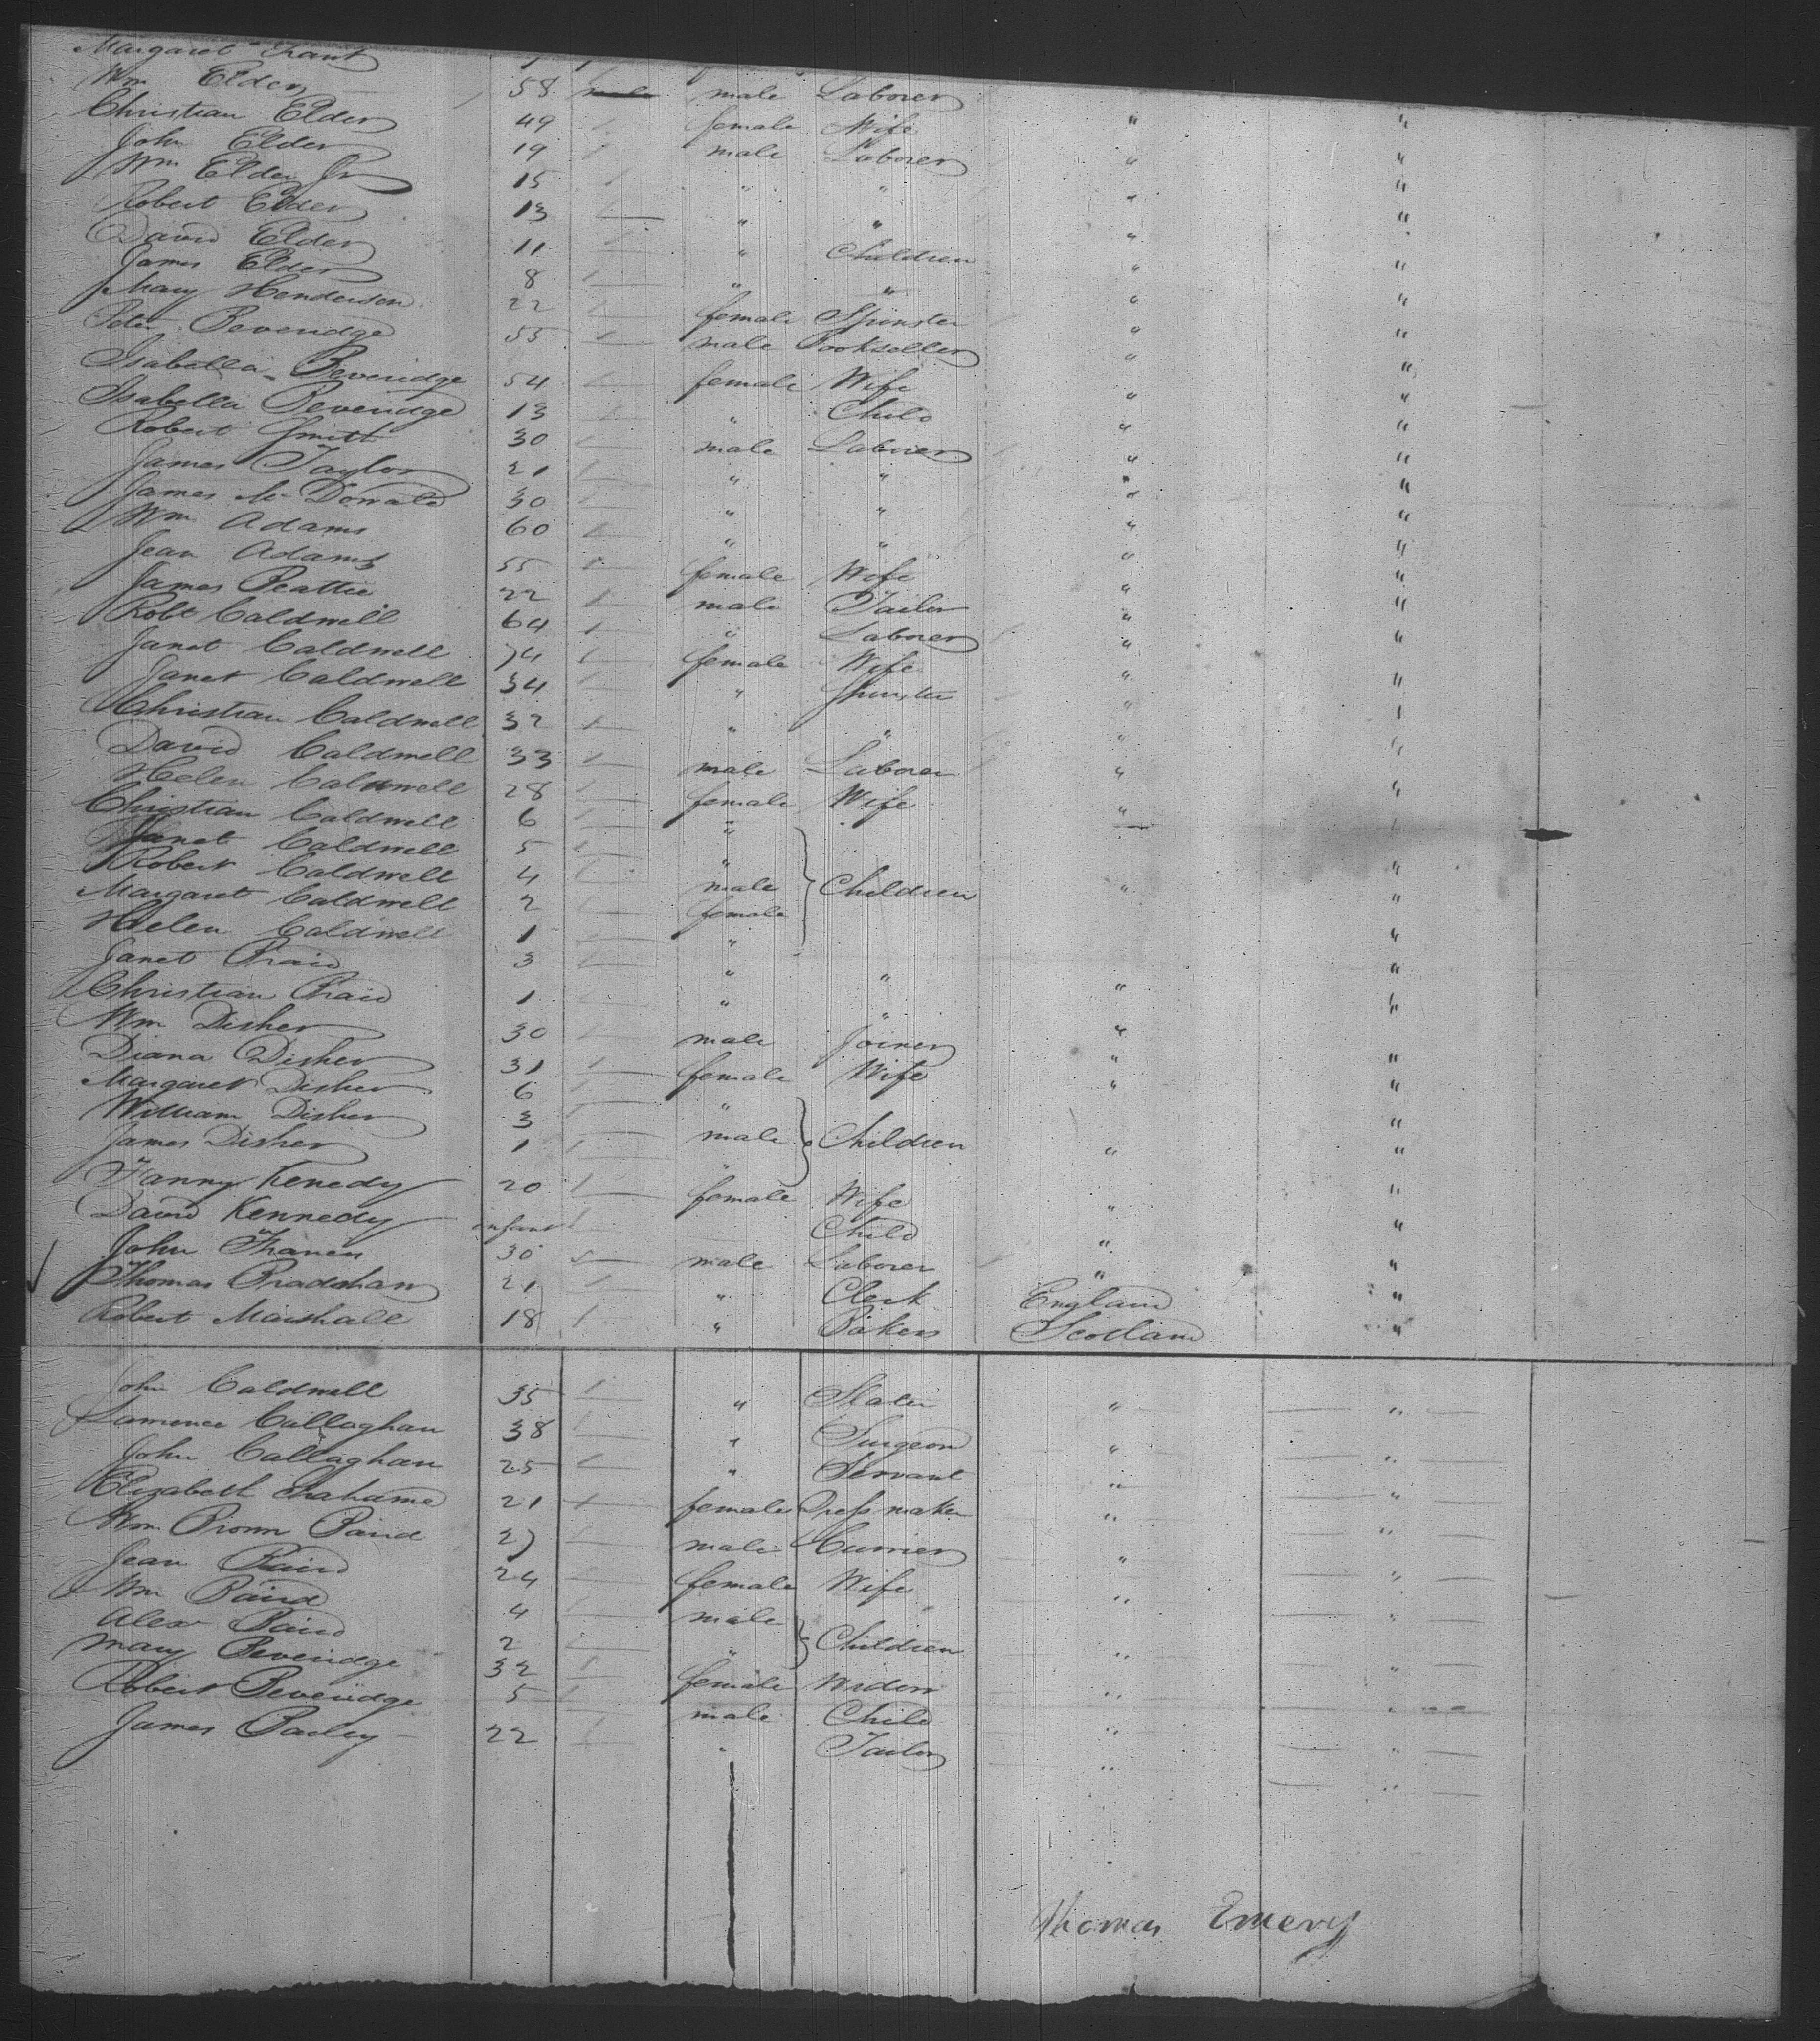 Margaret Grant
Wm Elder 58 male male Laborer
Christian Elder 49 female Wife " "
John Elder 19 male Laborer " "
Wm Elder Jr 15 " " " "
Robert Elder 13 " " " "
David Elder 11 " Children " "
James Elder 8 " " " "
Mary Henderson 22 female Spinster " "
Peter Beveridge 55 male Bookseller " "
Isabella Beveridge 54 female Wife " "
Isabella Beveridge 13 " Child " "
Robert Smith 30 male Laborer " "
James Taylor 21 " " " "
James McDonald 30 " " " "
Wm Adams 60 " " " "
Jean Adams 55 female Wife " "
James Beattie 22 male Tailor " "
Robt Caldwell 64 " Laborer " "
Janet Caldwell 74 female Wife " "
Janet Caldwell 34 " Spinster " "
Christian Caldwell 32 " " " "
David Caldwell 33 male Laborer " "
Helen Caldwell 28 female Wife " "
Christian Caldwell 6 " "
Janet Caldwell 5 "
Robert Caldwell 4 male Children " "
Margaret Caldwell 2 female "
Helen Caldwell 1 " "
Janet Braid 3 " " "
Christian Braid 1 " " " "
Wm Disher 30 male Joiner "
Diana Disher 31 female Wife " "
Margaret Disher 6 " " "
William Disher 3 male Children "
James Disher 1 " " "
Fanny Kenedy 20 female Wife "
David Kennedy infant Child " "
John 30 male Laborer " "
Thomas Bradshaw 21 " Clerk England "
Robert Marshall 18 " Baker Scotland "
John Caldwell 35 " Slater " "
Lawrence Callaghan 38 " Surgeon " "
John Callaghan 25 " Servant " "
Elizabeth Grahame 21 female Dress maker " "
Wm Brown Baird 27 male Currier " "
Jean Baird 24 female Wife " "
Wm Baird 4 male "
Alexr Baird 2 " Children "
Mary Beveridge 32 female Widow " "
Robert Beveridge 5 male Child " "
James Bailey 22 " Tailor " "
Thomas Emery